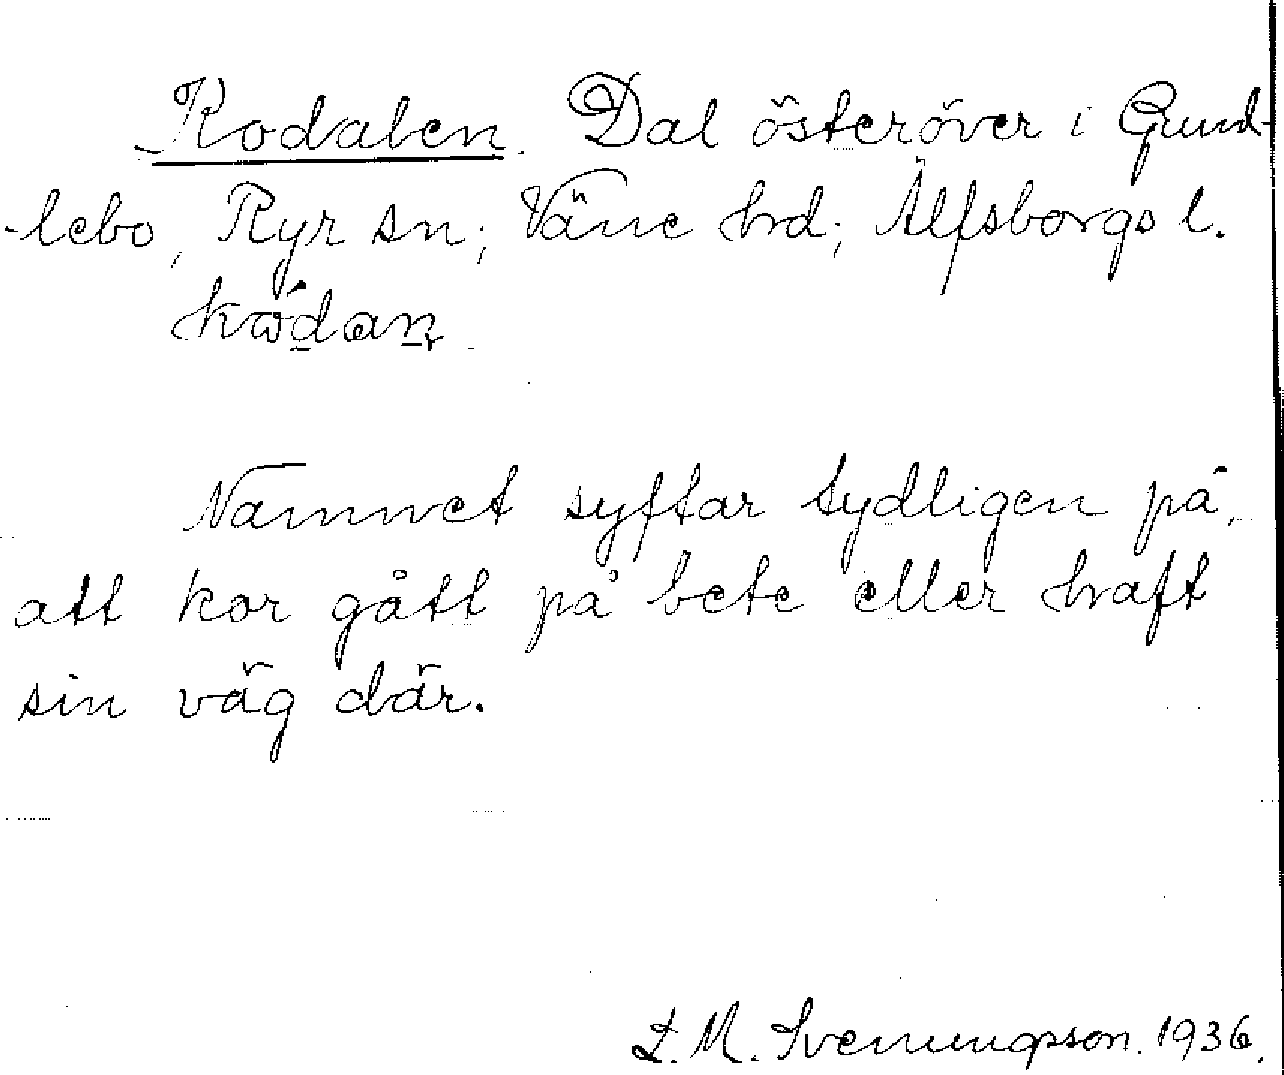 Kodalen. Dal österöver i Gund-
-lebo, Ryr sn; Väne hrd; Älfsborgs l.
Namnet syftar tydligen på,
att kor gått på bete eller haft
sin väg där.
L. M. Svenungsson. 1936.